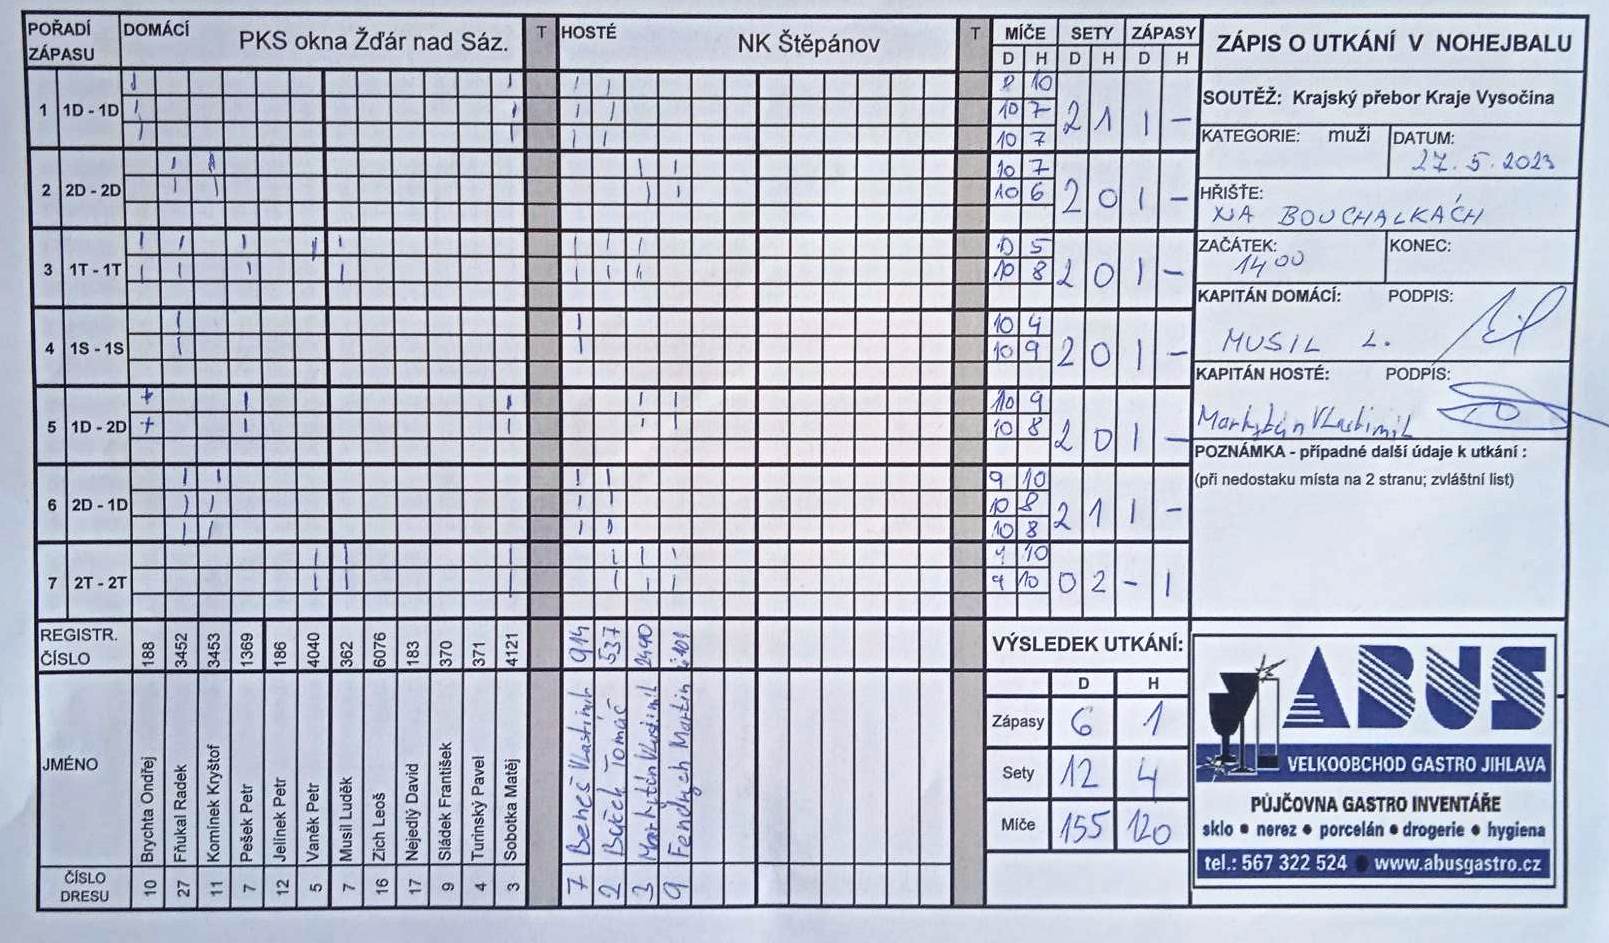 POŘADÍ ZÁPASU DOMÁCÍ PKS okna Žďár nad Sáz. T HOSTÉ NK Štěpánov T MÍČE SETY ZÁPASY
D H D H D H
ZÁPIS O UTKÁNÍ V NOHEJBALU
1 1D - 1D 8 10
10 7 2 1 1 -
10 7
2 2D - 2D 10 7
10 6 2 0 1 -
3 1T - 1T 10 5
10 8 2 0 1 -
4 1S - 1S 10 4
10 9 2 0 1 -
5 1D - 2D 10 9
10 8 2 0 1 -
6 2D - 1D 9 10
10 8 2 1 1 -
10 8
7 2T - 2T 10
9 10 0 2 - 1
SOUTĚŽ: Krajský přebor Kraje Vysočina
KATEGORIE: muži DATUM:
27.5.2023
HŘIŠTE:
NA BOUCHALKÁCH
ZAČÁTEK: KONEC:
14 00
KAPITÁN DOMÁCÍ: PODPIS:
MUSIL L.
KAPITÁN HOSTÉ: PODPÍS:
Markytán Vlastimil
POZNÁMKA - případné další údaje k utkání :
(při nedostaku místa na 2 stranu; zvláštní list)
REGISTR. ČÍSLO 188 3452 3453 1369 186 4040 362 6076 183 370 371 4121 914 537 2490
JMÉNO Brychta Ondřej Fňukal Radek Komínek Kryštof Pešek Petr Jelínek Petr Vaněk Petr Musil Luděk Zich Leoš Nejedlý David Sládek František Turinský Pavel Sobotka Matěj Beneš Vlastimil Tomáš Markytán Vlastimil Fendrych Martin
ČÍSLO DRESU 10 27 11 7 12 5 7 16 17 9 4 3 7 2 3 9
VÝSLEDEK UTKÁNÍ:
D H
Zápasy 6 1
Sety 12 4
Míče 155 120
ABUS
VELKOOBCHOD GASTRO JIHLAVA
PŮJČOVNA GASTRO INVENTÁŘE
sklo • nerez • porcelán • drogerie • hygiena
tel.: 567 322 524 • www.abusgastro.cz